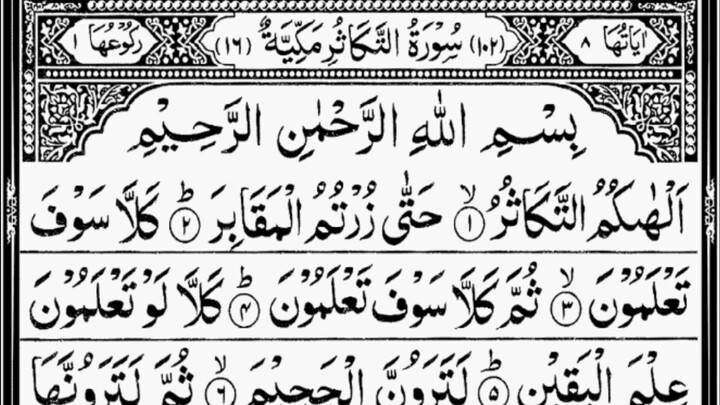 اٰيَاتُهَا ٨ (١٠٢) سُوْرَةُ التَّكَاثُرِ مَكِّيَّةٌ (١٦) رُكُوْعُهَا ١
بِسْمِ اللهِ الرَّحْمٰنِ الرَّحِيْمِ
اَلْهٰىكُمُ التَّكَاثُرُ ۙ﴿١﴾ حَتّٰى زُرْتُمُ الْمَقَابِرَ ؕ﴿٢﴾ كَلَّا سَوْفَ
تَعْلَمُوْنَ ۙ﴿٣﴾ ثُمَّ كَلَّا سَوْفَ تَعْلَمُوْنَ ؕ﴿٤﴾ كَلَّا لَوْ تَعْلَمُوْنَ
عِلْمَ الْيَقِيْنِ ؕ﴿٥﴾ لَتَرَوُنَّ الْجَحِيْمَ ۙ﴿٦﴾ ثُمَّ لَتَرَوُنَّهَا